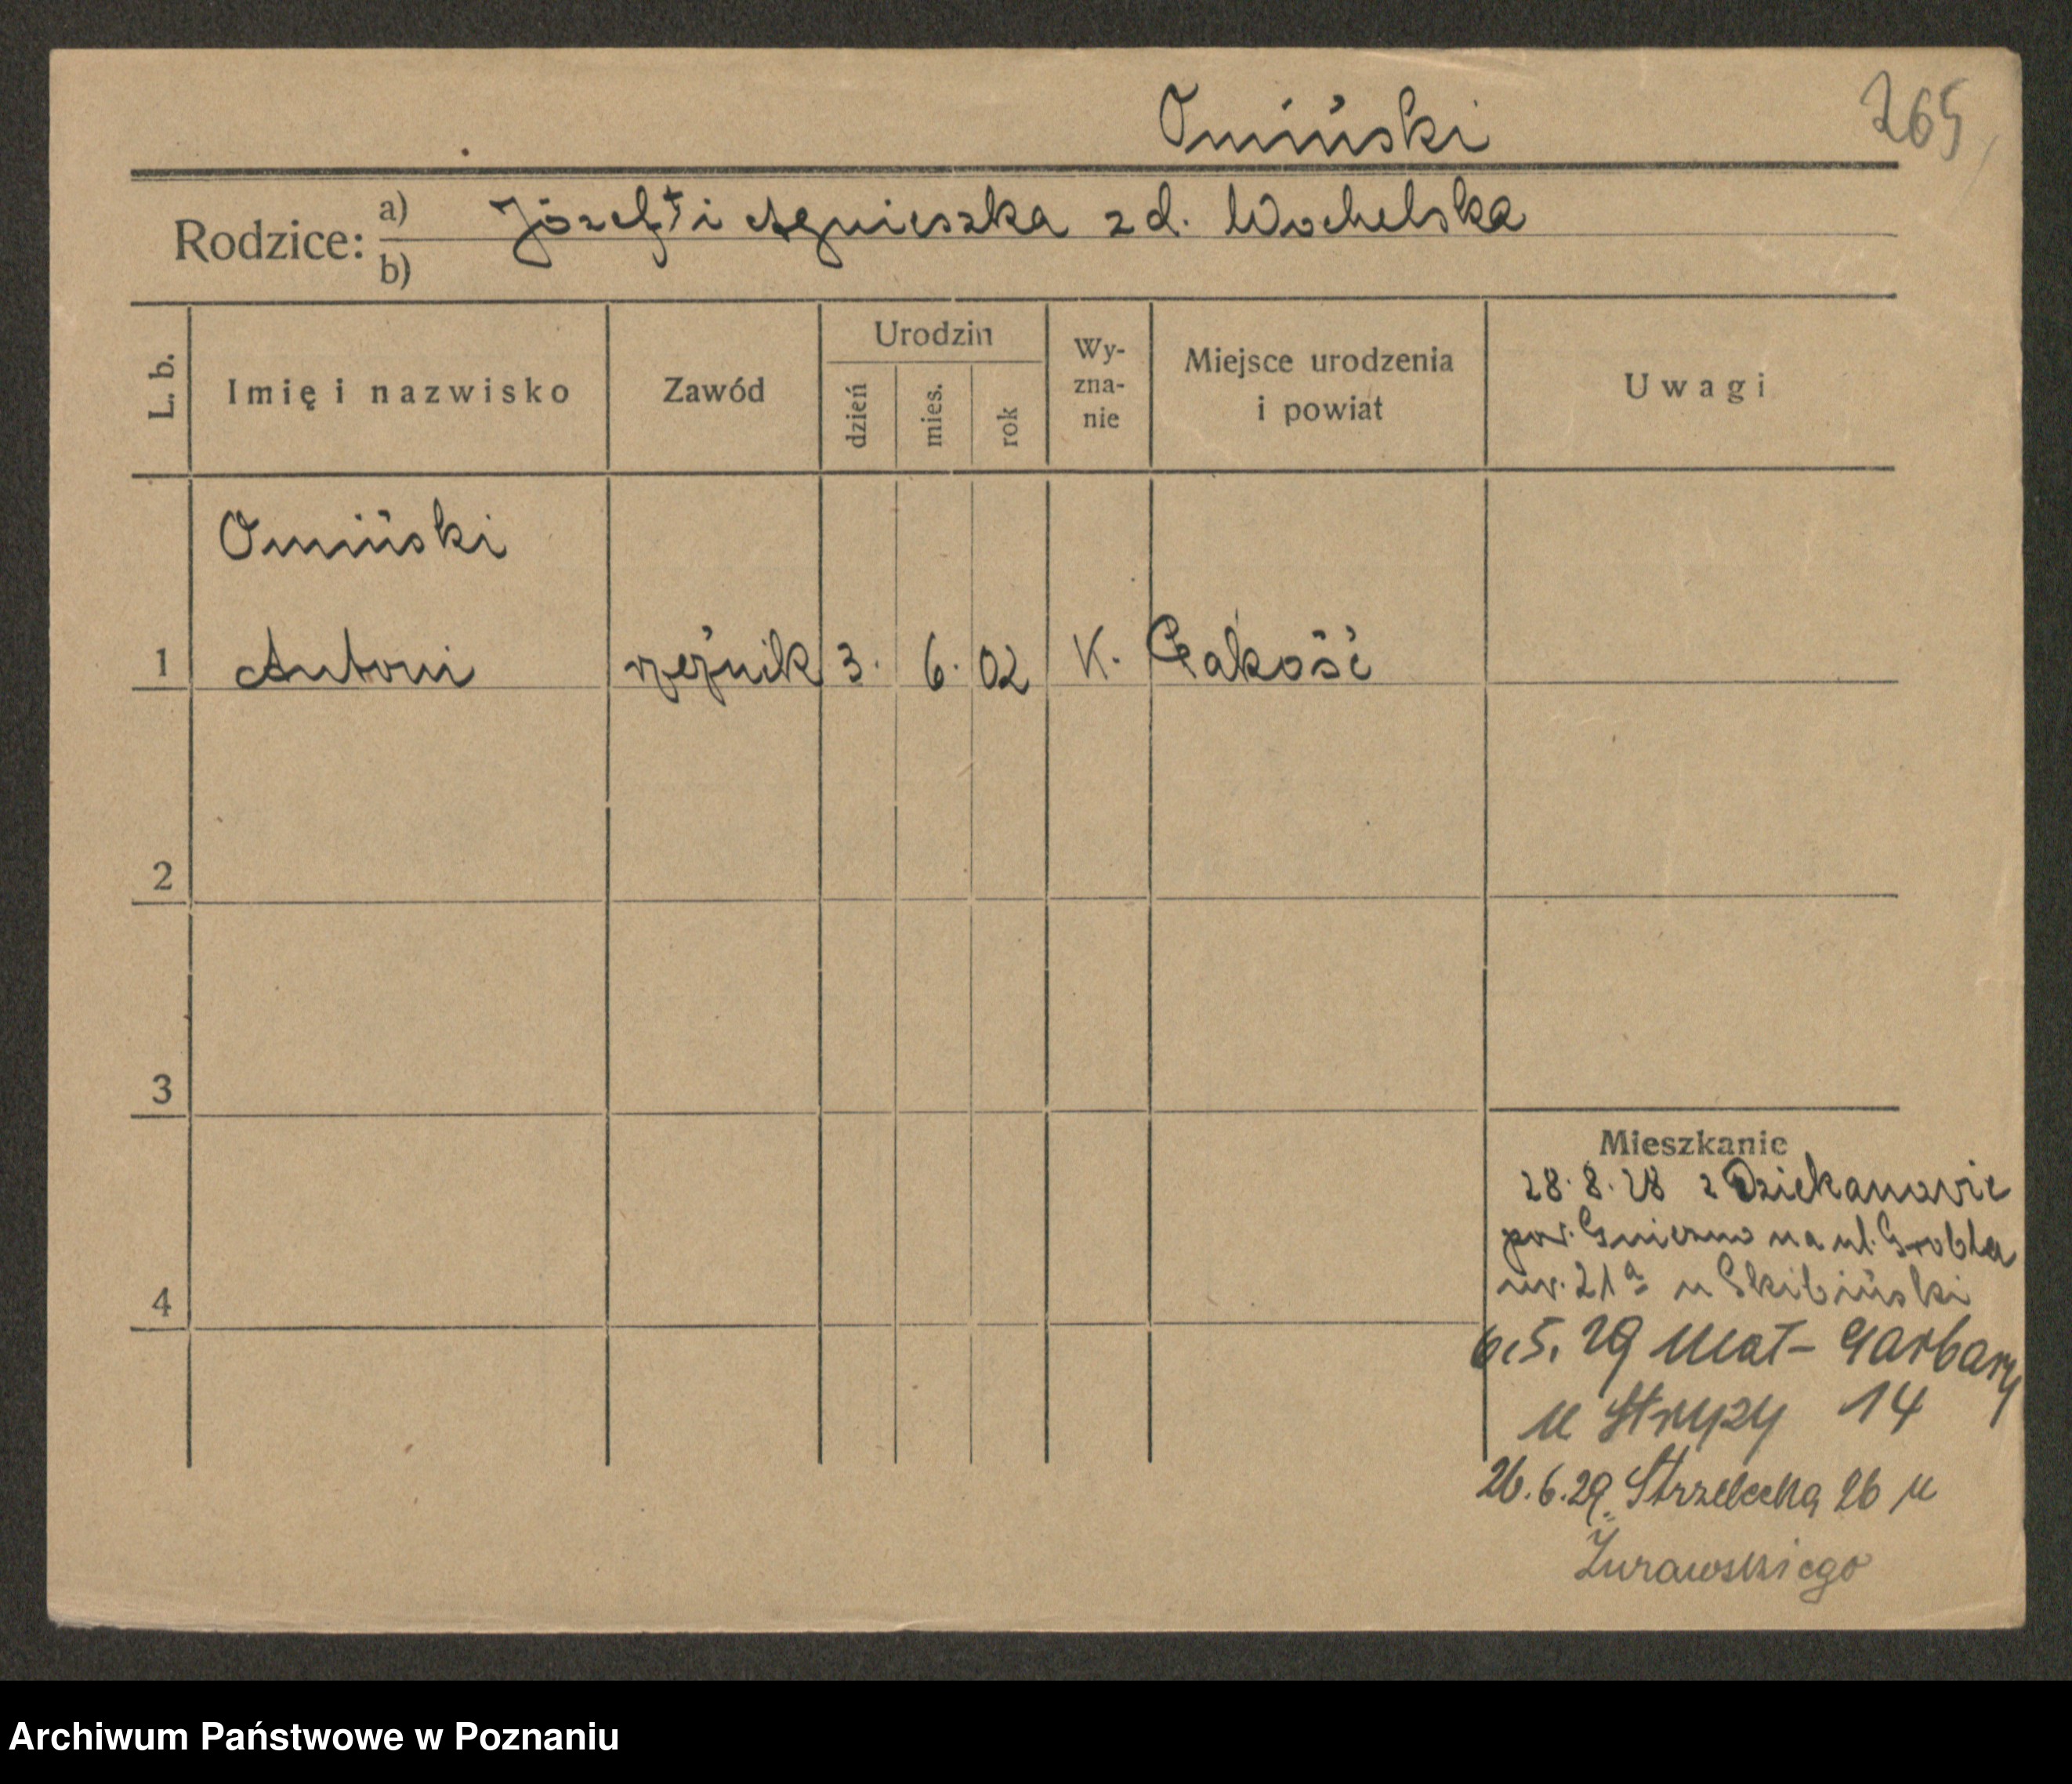 Omiński
265
Rodzice: a) Józef † i Agnieszka z d. Wochelska
b)
L. b.
Imię i nazwisko
Zawód
Urodzin
dzień
mies.
rok
Wy-
zna-
nie
Miejsce urodzenia
i powiat
Uwagi
Omiński
1 Antoni rzeźnik 3. 6. 02 K. Pakość
2
3
4
Mieszkanie
28.8.28 z Dziekanowic
pow. Gniezno na ul. Grobla
nr. 21a u Skibiński
6.5.29 Mał- Garbary
u Stryzy 14
26.6.29. Strzelecka 26 u
Żurawskiego
Archiwum Państwowe w Poznaniu